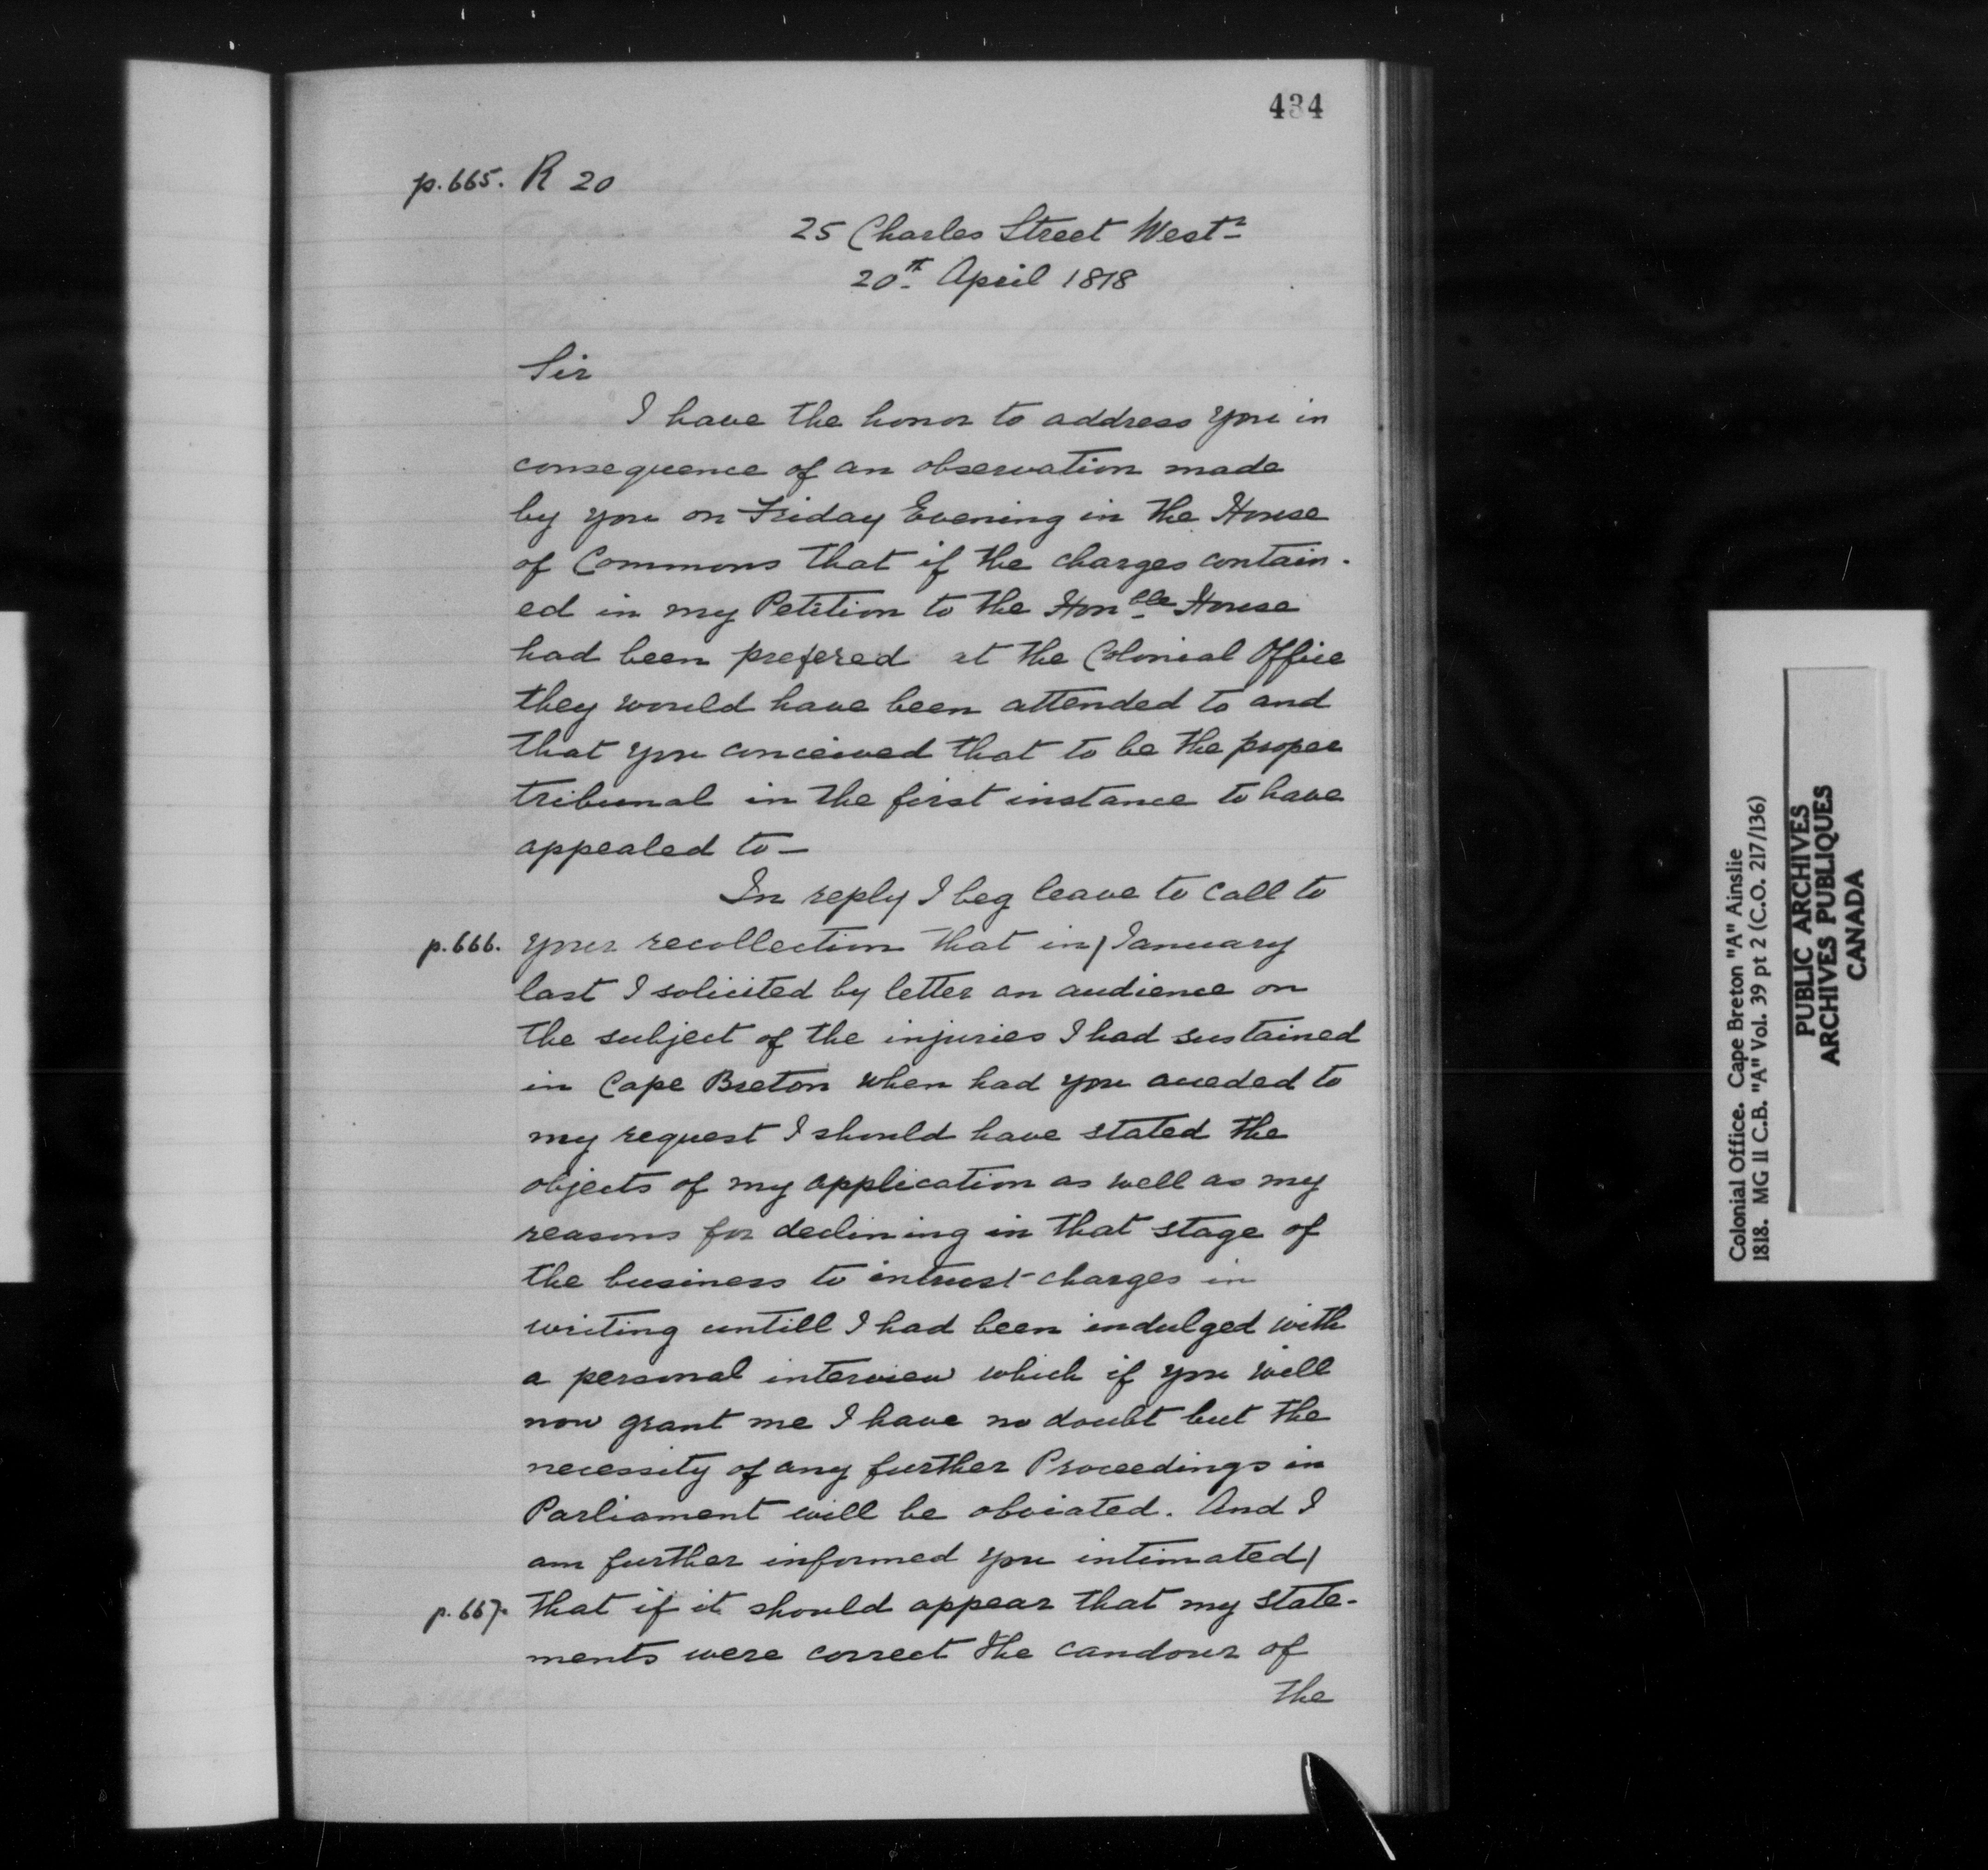 434
p.665. R 20
25 Charles Street Westr
20th April 1818
Sir
I have the honor to address you in
consequence of an observation made
by you on Friday Evening in the House
of Commons that if the charges contain-
ed in my Petition to the Honble House
had been prefered at the Colonial Office
they would have been attended to and
that you conceived that to be the proper
tribunal in the first instance to have
appealed to —
In reply I beg leave to call to
p.666. your recollection that in / January
last I solicited by letter an audience on
the subject of the injuries I had sustained
in Cape Breton when had you acceded to
my request I should have stated the
objects of my application as well as my
reasons for declining in that stage of
the business to intrust charges in
writing untill I had been indulged with
a personal interview which if you will
now grant me I have no doubt but the
necessity of any further Proceedings in
Parliament will be obviated. And I
am further informed you intimated /
p.667. that if it should appear that my state-
ments were correct the candour of
the
Colonial Office. Cape Breton "A" Ainslie
1818. MG 11 C.B. "A" Vol. 39 pt 2 (C.O. 217/136)
PUBLIC ARCHIVES
ARCHIVES PUBLIQUES
CANADA